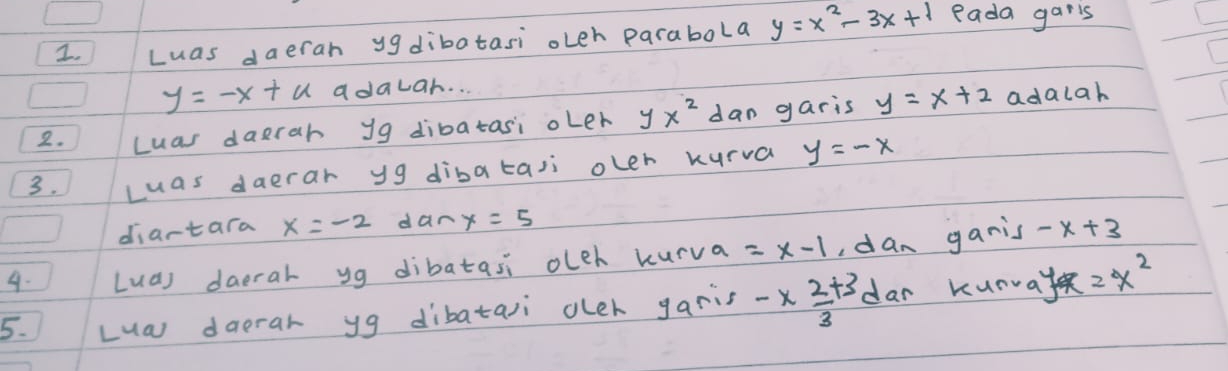 1. Luas daerah yg dibatasi oleh parabola y = x² - 3x + 1 Pada garis
y = -x + 4 adalah...
2. Luas daerah yg dibatasi oleh yx² dan garis y = x + 2 adalah
3. Luas daerah yg dibatasi oleh kurva y = -x
diantara x = -2 dan x = 5
4. Luas daerah yg dibatasi oleh kurva = x - 1, dan garis - x + 3
5. Luas daerah yg dibatasi oleh garis - x 2+3/3 dan kurva y = x²